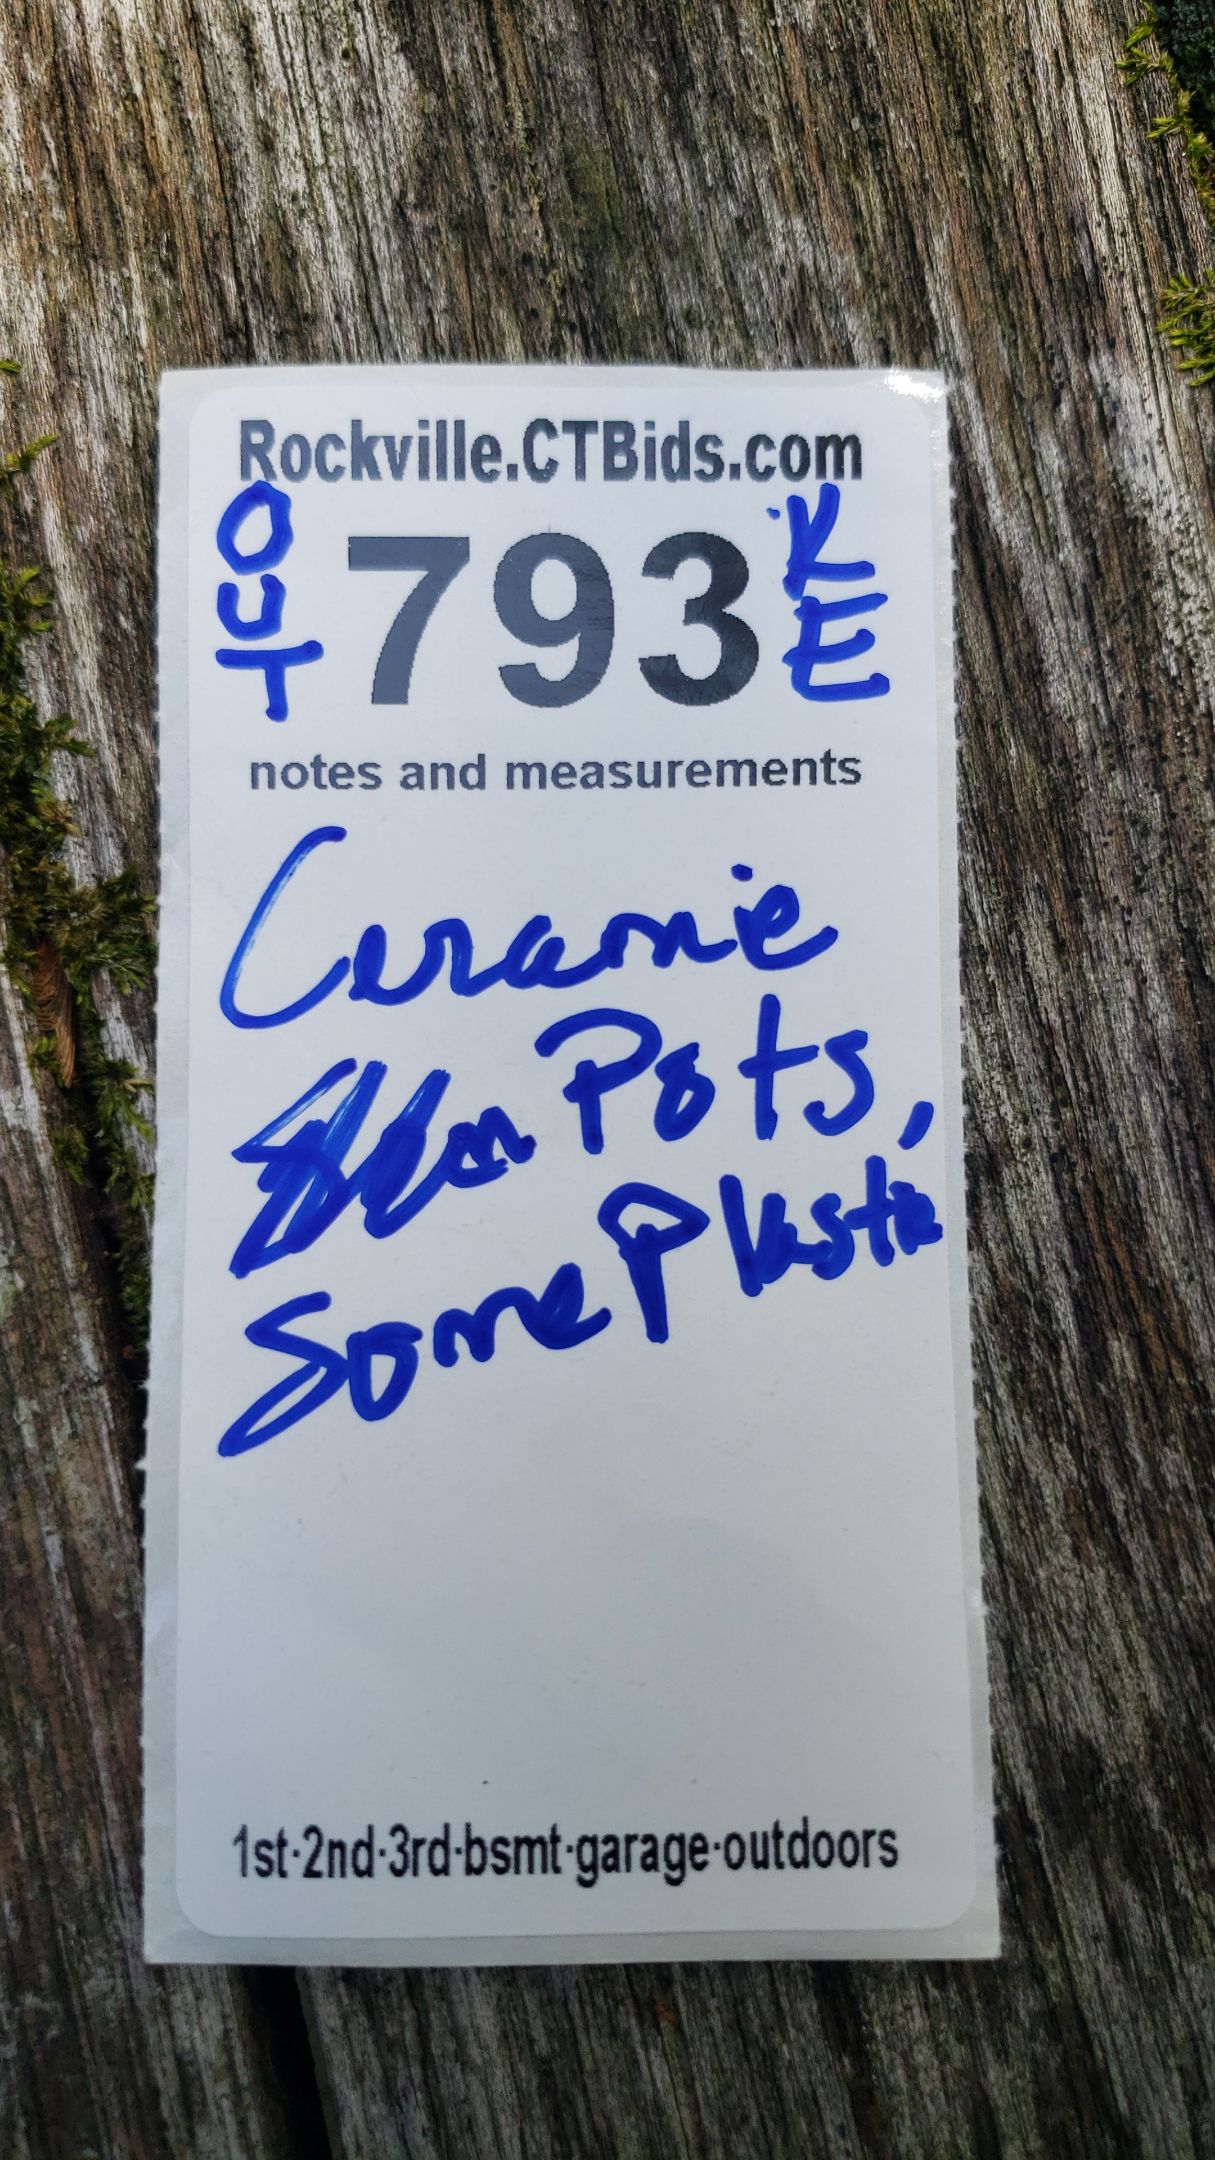 Rockville.CTBids.com
OUT 793 KE
notes and measurements
Ceramic
Pots,
Some Plastic
1st·2nd·3rd·bsmt·garage·outdoors